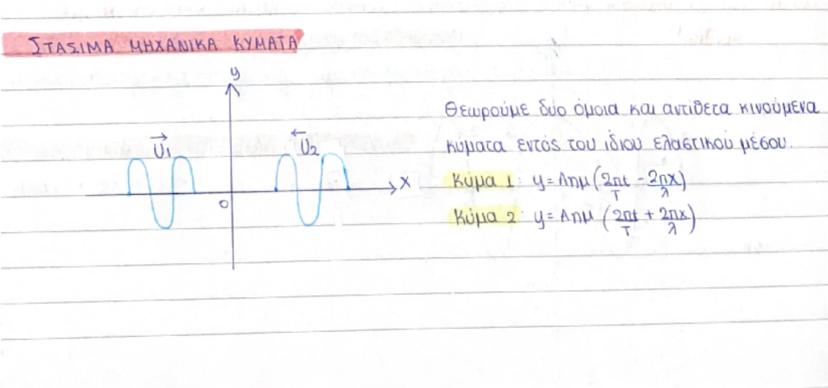 ΣΤΑΣΙΜΑ ΜΗΧΑΝΙΚΑ ΚΥΜΑΤΑ
y
υ1
υ2
x
0
Θεωρούμε δύο όμοια και αντίθετα κινούμενα
κύματα εντός του ίδιου ελαστικού μέσου.
Κύμα 1: y=Αημ(2πt/T - 2πx/λ)
Κύμα 2: y=Αημ (2πt/T + 2πx/λ)